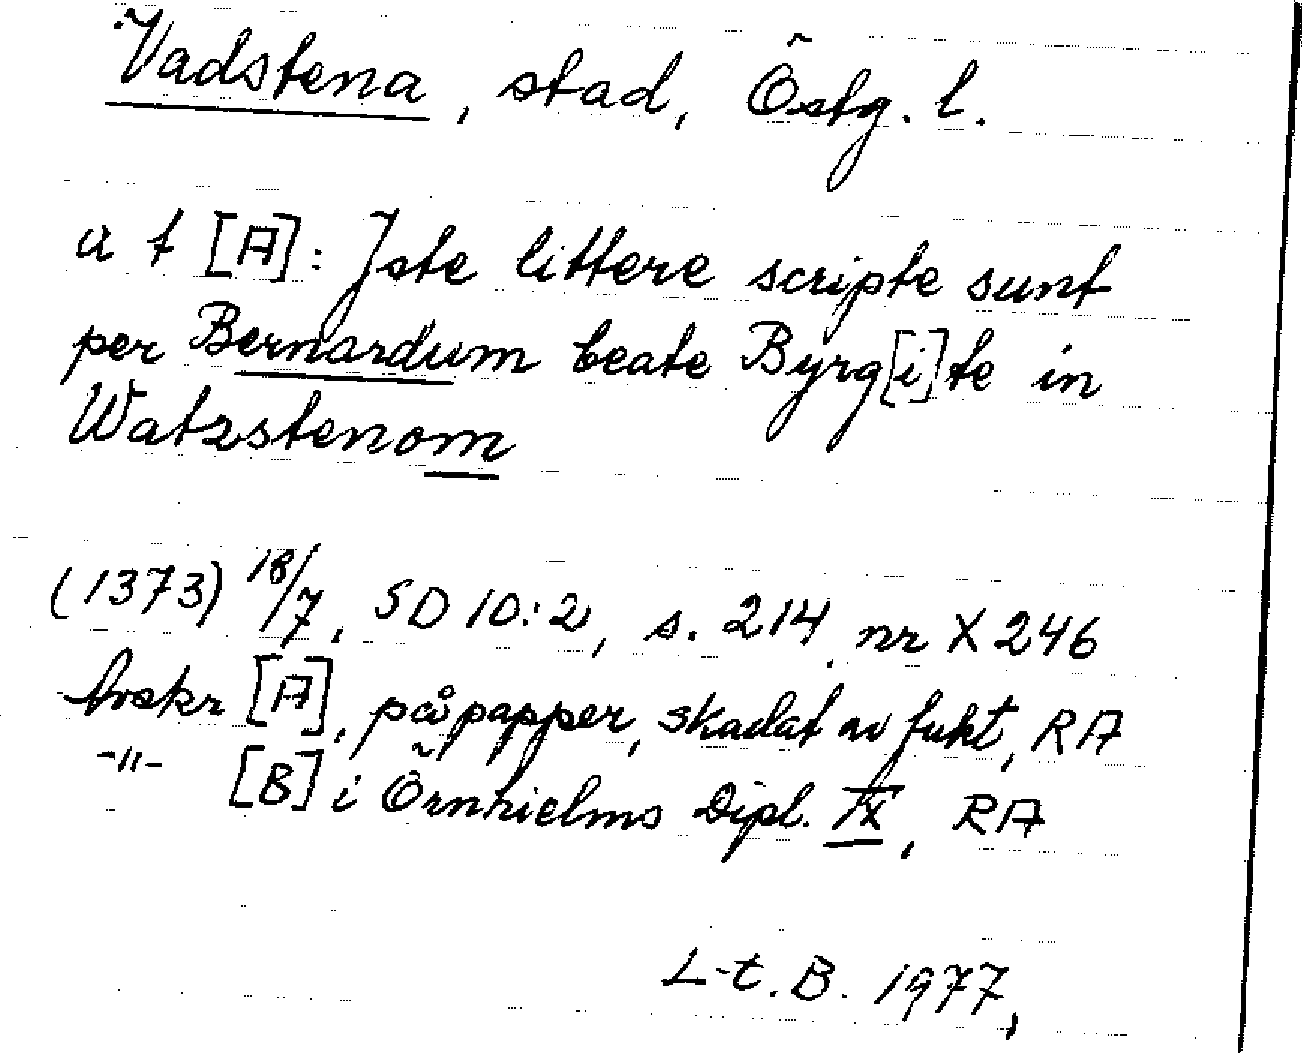 Vadstena, stad, Östg. l.
a t [A]: Jste littere scripte sunt
per Bernardum beate Byrg[i]te in
Watzstenom
(1373) 18/7, SD 10:2, s. 214, nr X 246
Avskr [A], på papper, skadat av fukt, RA
-"- [B] i Örnhielms Dipl. IX, RA
L-t. B. 1977,